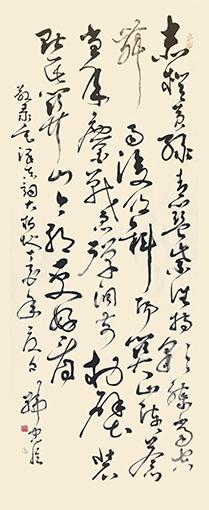 赤橙黄绿青蓝紫谁持彩练当空
舞
雨后复斜阳关山阵苍
当年鏖战急弹洞前村壁装
点此关山今朝更好看
敬录毛泽东词大柏地